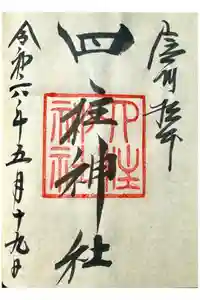 信州松本
四柱神社
令和六年五月十九日
四柱
神社